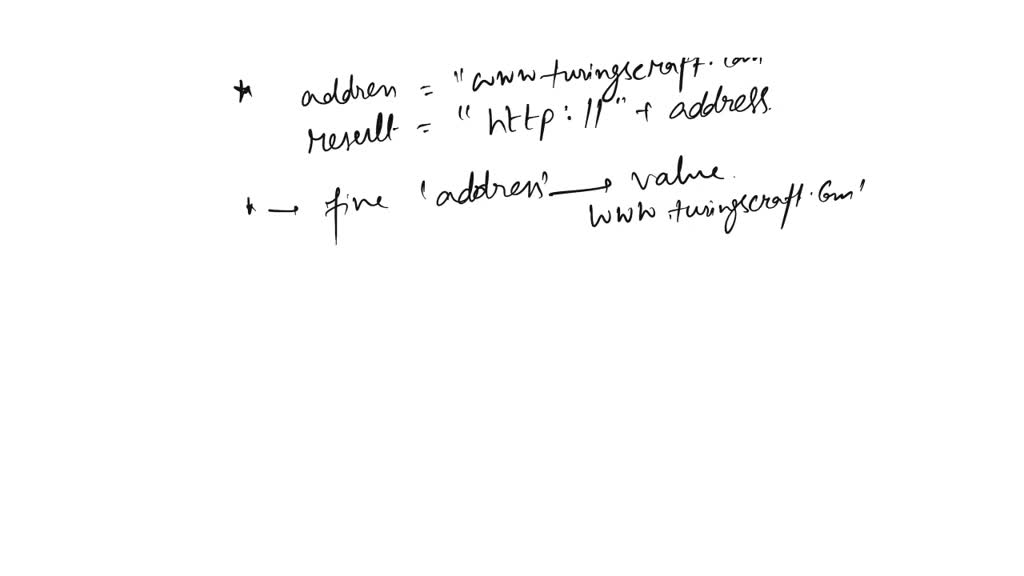 * address = "www.turingscraft.com
result = "http://" + address.
* → fine 'address' → value.
www.turingscraft.com'